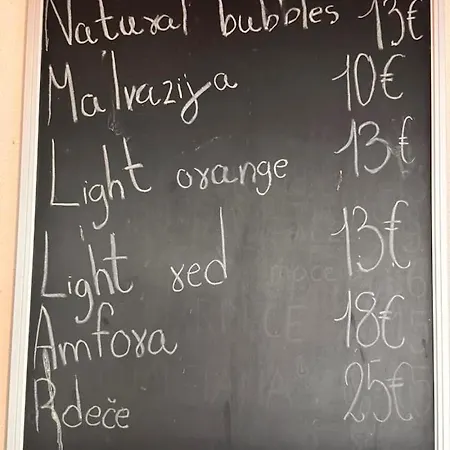 Natural bubbles 13€
Malvazija 10€
Light orange 13€
Light red 13€
Amfora 18€
Rdeče 25€